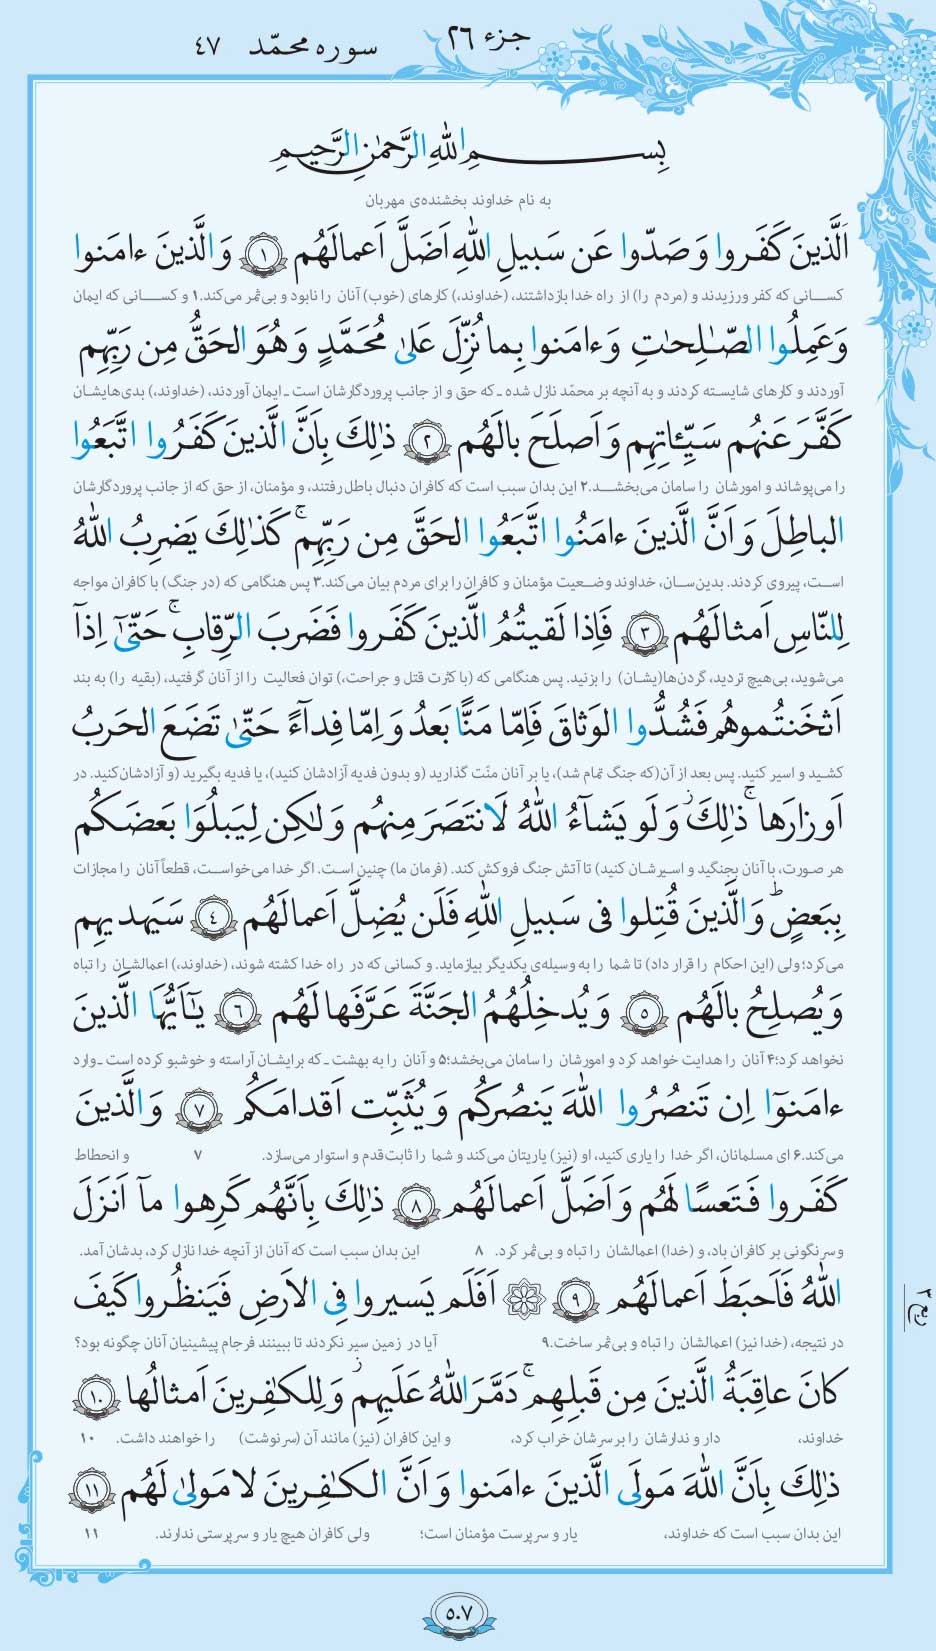 جزء ۲۶
سوره محمّد ۴۷
بِسمِ اللّٰهِ الرَّحمٰنِ الرَّحیمِ
به نام خداوند بخشنده‌ی مهربان
اَلَّذینَ کَفَروا وَ صَدّوا عَن سَبیلِ اللّٰهِ اَضَلَّ اَعمالَهُم ﴿۱﴾ وَ الَّذینَ ءامَنوا
کسانی که کفر ورزیدند و (مردم را) از راه خدا بازداشتند، (خداوند،) کارهای (خوب) آنان را نابود و بی‌ثمر می‌کند.۱ و کسانی که ایمان
وَ عَمِلُوا الصّـٰلِحٰتِ وَ ءامَنوا بِما نُزِّلَ عَلیٰ مُحَمَّدٍ وَ هُوَ الحَقُّ مِن رَبِّهِم
آوردند و کارهای شایسته کردند و به آنچه بر محمّد نازل شده ـ که حق و از جانب پروردگارشان است ـ ایمان آوردند، (خداوند،) بدی‌هایشان
کَفَّرَ عَنهُم سَیِّئاتِهِم وَ اَصلَحَ بالَهُم ﴿۲﴾ ذٰلِکَ بِاَنَّ الَّذینَ کَفَرُوا اتَّبَعُوا
را می‌پوشاند و امورشان را سامان می‌بخشد.۲ این بدان سبب است که کافران دنبال باطل رفتند، و مؤمنان، از حق که از جانب پروردگارشان
الباطِلَ وَ اَنَّ الَّذینَ ءامَنُوا اتَّبَعُوا الحَقَّ مِن رَبِّهِم ۚ کَذٰلِکَ یَضرِبُ اللّٰهُ
است، پیروی کردند. بدین‌سان، خداوند وضعیت مؤمنان و کافران را برای مردم بیان می‌کند.۳ پس هنگامی که (در جنگ) با کافران مواجه
لِلنّاسِ اَمثالَهُم ﴿۳﴾ فَاِذا لَقیتُمُ الَّذینَ کَفَروا فَضَربَ الرِّقابِ ۚ حَتّیٰٓ اِذآ
می‌شوید، بی‌هیچ تردید، گردن‌ها(یشان) را بزنید. پس هنگامی که (با کثرت قتل و جراحت،) توان فعالیت را از آنان گرفتید، (بقیه را) به بند
اَثخَنتُموهُم فَشُدُّوا الوَثاقَ فَاِمّا مَنًّا بَعدُ وَ اِمّا فِدآءً حَتّیٰ تَضَعَ الحَربُ
کشید و اسیر کنید. پس بعد از آن(که جنگ تمام شد)، یا بر آنان منّت گذارید (و بدون فدیه آزادشان کنید)، یا فدیه بگیرید (و آزادشان‌کنید. در
اَوزارَها ۚ ذٰلِکَ ۛ وَ لَو یَشآءُ اللّٰهُ لَانتَصَرَ مِنهُم وَ لٰکِن لِیَبلُوَا بَعضَکُم
هر صورت، با آنان بجنگید و اسیرشان کنید) تا آتش جنگ فروکش کند. (فرمان ما) چنین است. اگر خدا می‌خواست، قطعاً آنان را مجازات
بِبَعضٍ ؕ وَ الَّذینَ قُتِلوا فی سَبیلِ اللّٰهِ فَلَن یُضِلَّ اَعمالَهُم ﴿۴﴾ سَیَهدیهِم
می‌کرد؛ ولی (این احکام را قرار داد) تا شما را به وسیله‌ی یکدیگر بیازماید. و کسانی که در راه خدا کشته شوند، (خداوند،) اعمالشان را تباه
وَ یُصلِحُ بالَهُم ﴿۵﴾ وَ یُدخِلُهُمُ الجَنَّةَ عَرَّفَها لَهُم ﴿۶﴾ یٰٓاَیُّهَا الَّذینَ
نخواهد کرد؛۴ آنان را هدایت خواهد کرد و امورشان را سامان می‌بخشد؛۵ و آنان را به بهشت ـ که برایشان آراسته و خوشبو کرده است ـ وارد
ءامَنوٓا اِن تَنصُرُوا اللّٰهَ یَنصُرکُم وَ یُثَبِّت اَقدامَکُم ﴿۷﴾ وَ الَّذینَ
می‌کند.۶ ای مسلمانان، اگر خدا را یاری کنید، او (نیز) یاریتان می‌کند و شما را ثابت‌قدم و استوار می‌سازد. ۷ و انحطاط
کَفَروا فَتَعسًا لَهُم وَ اَضَلَّ اَعمالَهُم ﴿۸﴾ ذٰلِکَ بِاَنَّهُم کَرِهوا مآ اَنزَلَ
و سرنگونی بر کافران باد، و (خدا) اعمالشان را تباه و بی‌ثمر کرد. ۸ این بدان سبب است که آنان از آنچه خدا نازل کرد، بدشان آمد.
اللّٰهُ فَاَحبَطَ اَعمالَهُم ﴿۹﴾ ۞ اَفَلَم یَسیروا فِی الاَرضِ فَیَنظُروا کَیفَ
در نتیجه، (خدا نیز) اعمالشان را تباه و بی‌ثمر ساخت.۹ آیا در زمین سیر نکردند تا ببینند فرجام پیشینیان آنان چگونه بود؟
ربع ۲
کانَ عاقِبَةُ الَّذینَ مِن قَبلِهِم ۚ دَمَّرَ اللّٰهُ عَلَیهِم ۛ وَ لِلکٰفِرینَ اَمثالُها ﴿۱۰﴾
خداوند، دار و ندارشان را بر سرشان خراب کرد، و این کافران (نیز) مانند آن (سرنوشت) را خواهند داشت. ۱۰
ذٰلِکَ بِاَنَّ اللّٰهَ مَولَی الَّذینَ ءامَنوا وَ اَنَّ الکـٰفِرینَ لا مَولیٰ لَهُم ﴿۱۱﴾
این بدان سبب است که خداوند، یار و سرپرست مؤمنان است؛ ولی کافران هیچ یار و سرپرستی ندارند. ۱۱
۵۰۷